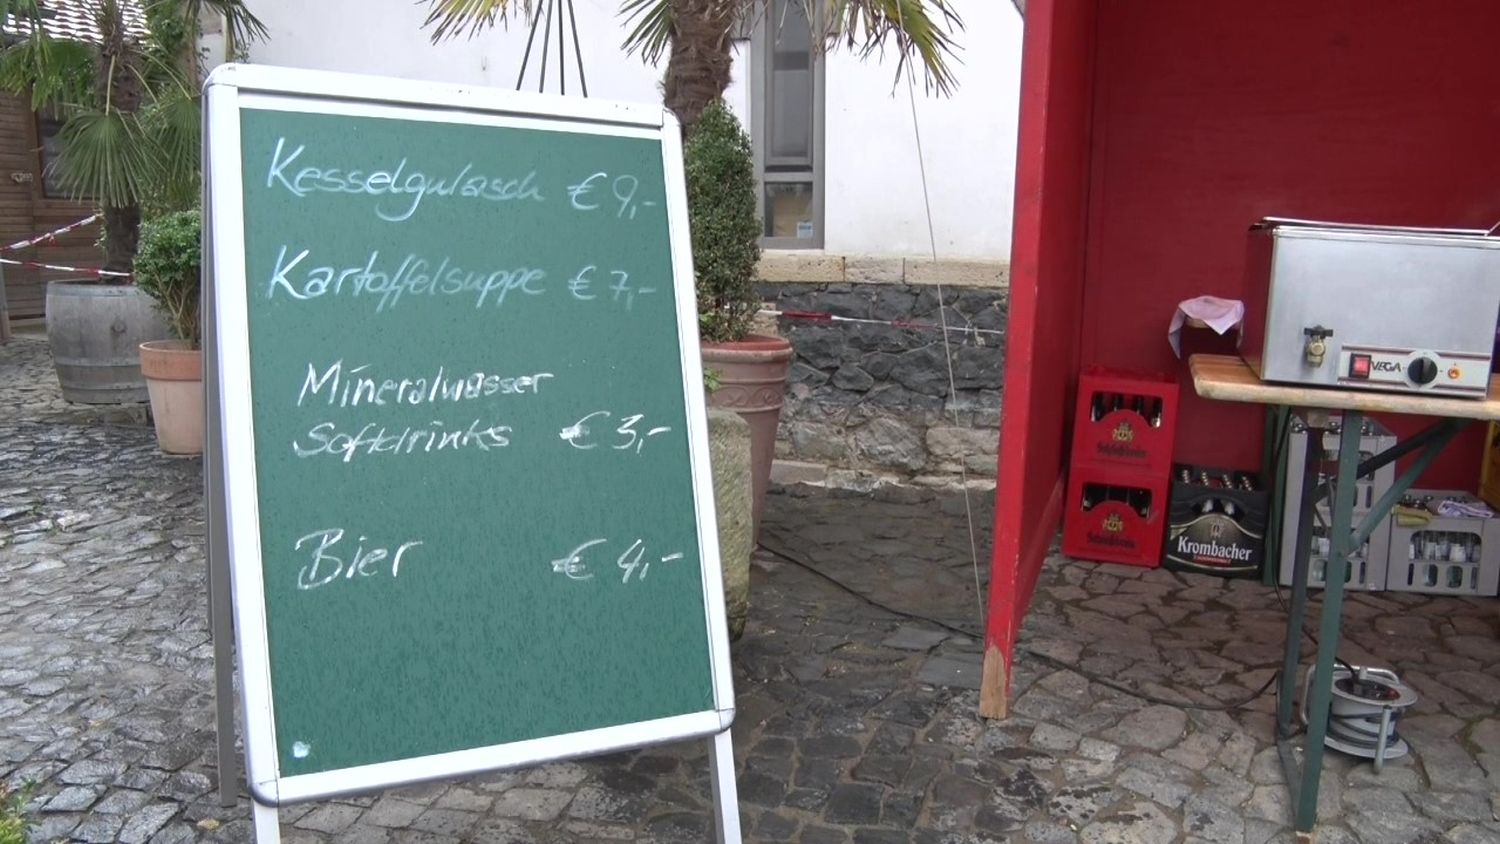 Kesselgulasch € 9,-
Kartoffelsuppe € 7,-
Mineralwasser
Softdrinks € 3,-
Bier € 4,-
VEGA
Krombacher